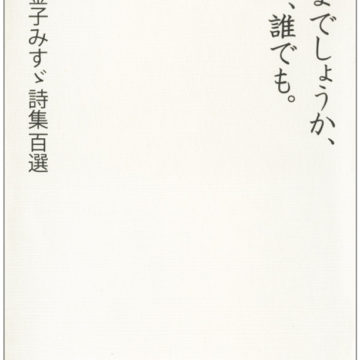 までしょうか、
、誰でも。
金子みすゞ詩集百選